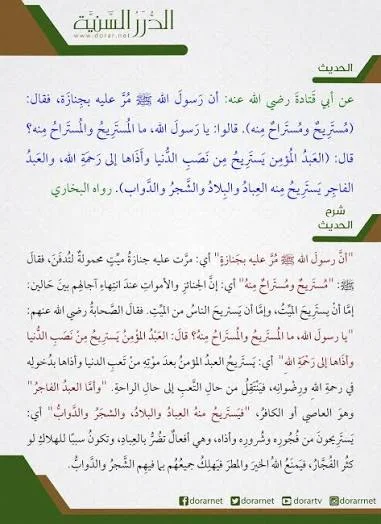 الدُّرَرُ السَّنِيَّة
www.dorar.net
الحديث
عن أبي قَتادةَ رضي الله عنه: أن رَسولَ الله ﷺ مُرَّ عليه بجِنازَة، فقال:
(مُستَرِيحٌ ومُستَراحٌ مِنه). قالوا: يا رَسولَ الله، ما المُستَرِيحُ والمُستَراحُ مِنه؟
قال: (العَبدُ المُؤمِن يَستَرِيحُ مِن نَصَبِ الدُّنيا وأَذَاها إلى رَحمَةِ الله، والعَبدُ
الفاجِر يَستَرِيحُ مِنه العِبادُ والبِلادُ والشَّجرُ والدَّواب). رواه البخاري
شرح
الحديث
"أنَّ رسولَ الله ﷺ مُرَّ عليه بجَنازةٍ" أي: مرَّت عليه جنازةُ ميِّتٍ محمولةً لتُدفَنَ، فقالَ
ﷺ: "مُستَريحٌ ومُستَراحٌ مِنهُ" أي: إنَّ الجنائزَ والأمواتِ عندَ انتِهاءِ آجالِهم بينَ حالَينِ:
إمَّا أنْ يستريحَ الميِّتُ، وإمَّا أن يَستريحَ الناسُ من الميِّتِ. فقالَ الصَّحابةُ رضي الله عنهم:
"يا رسولَ الله، ما المُستَريحُ والمُستَراحُ مِنْهُ؟ قالَ: العَبدُ المُؤمنُ يَستريحُ مِنْ نَصَبِ الدُّنيا
وأذَاها إلى رَحْمَةِ الله" أي: يَستَريحُ العبدُ المؤمنُ بعدَ موْتِه من تَعبِ الدنيا وأذاها بدُخولِه
في رحمةِ اللهِ ورِضْوانِه، فيَنْتَقِلُ من حالِ التَّعبِ إلى حالِ الراحةِ. "وأمَّا العبدُ الفاجرُ"
وهو العاصي أو الكافرُ، "فيَستَريحُ منهُ العِبادُ والبلادُ، والشجَرُ والدَّوابُّ" أي:
يَستَرِيحونَ من فُجُورِه وشُرورِه وأذاه، وهي أفعالٌ تضُرُّ بالعِبادِ، وتكونُ سببًا للهلاكِ لو
كثُر الفُجَّارُ، فيَمنَعُ اللهُ الخيرَ والمطرَ فيَهلِكُ جميعُهُم بما فيهِم الشَّجرُ والدَّوابُّ.
dorarnet dorarnet dorartv dorarnet